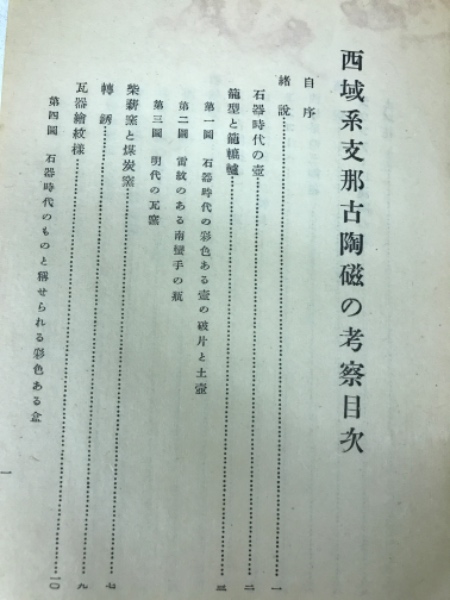 西域系支那古陶磁の考察目次
自序
緒說……一
石器時代の壺……二
籠型と籠轆轤……三
第一圖 石器時代の彩色ある壺の破片と土壺
第二圖 雷紋のある南蠻手の瓶
第三圖 明代の瓦窯
柴薪窯と煤炭窯……七
轉
瓦器繪紋樣……九
第四圖 石器時代のものと稱せられる彩色ある盒……一〇
一